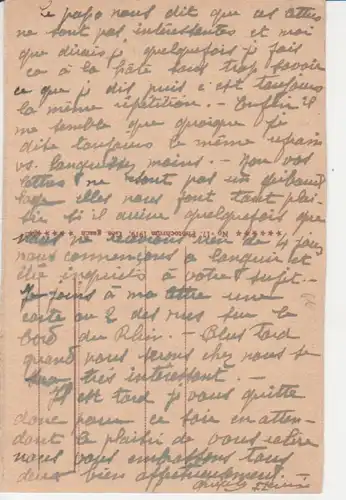 Le papa nous dit que ces lettres
ne sont pas intéressantes et moi
que dirais-je, quelquefois je fais
ça à la hâte sans trop savoir
ce que je dis puis c'est toujours
la même répétition. - Enfin il
me semble que quoique je
dise toujours le même refrain
vs. languissez moins. - Non vos
lettres ne sont pas un
elles nous font tant plai-
sir si il arrive quelquefois que
nous ne recevions rien de 4 jours
nous commençons à languir et
être inquiets à votre sujet. -
Je joins à ma lettre une
carte ou 2 des vues sur le
bord du Rhin. - Plus tard
quand nous serons chez nous se
sera très intéressant. -
Il est tard je vous quitte
donc pour ce soir en atten-
dant le plaisir de vous relire
nous vous embrassons tous
deux bien affectueusement.